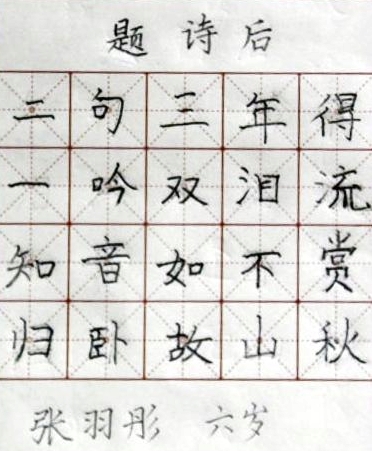 题诗后
二句三年得
一吟双泪流
知音如不赏
归卧故山秋
张羽彤 六岁